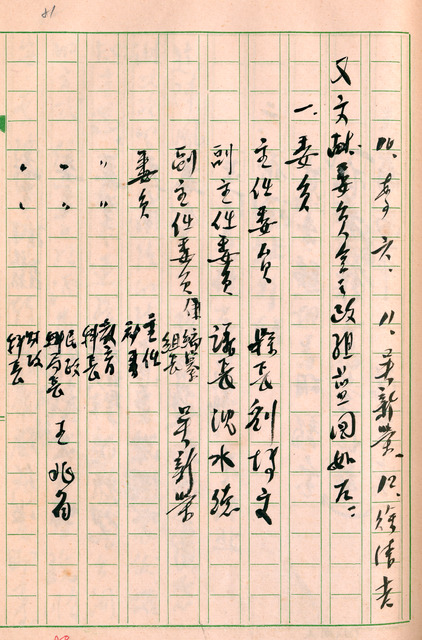 81
10、李六、 11、吳新榮、12、徐清吉
又文献委員會之政組藍図如左：
一、委員
主任委員 縣長 刘博文
副主任委員 議長 沈水德
副主任委員俱編纂組長 吳新榮
委員 主任秘書
〃 教育科長
〃 〃 民政科局長 王兆
〃 〃 財政科長